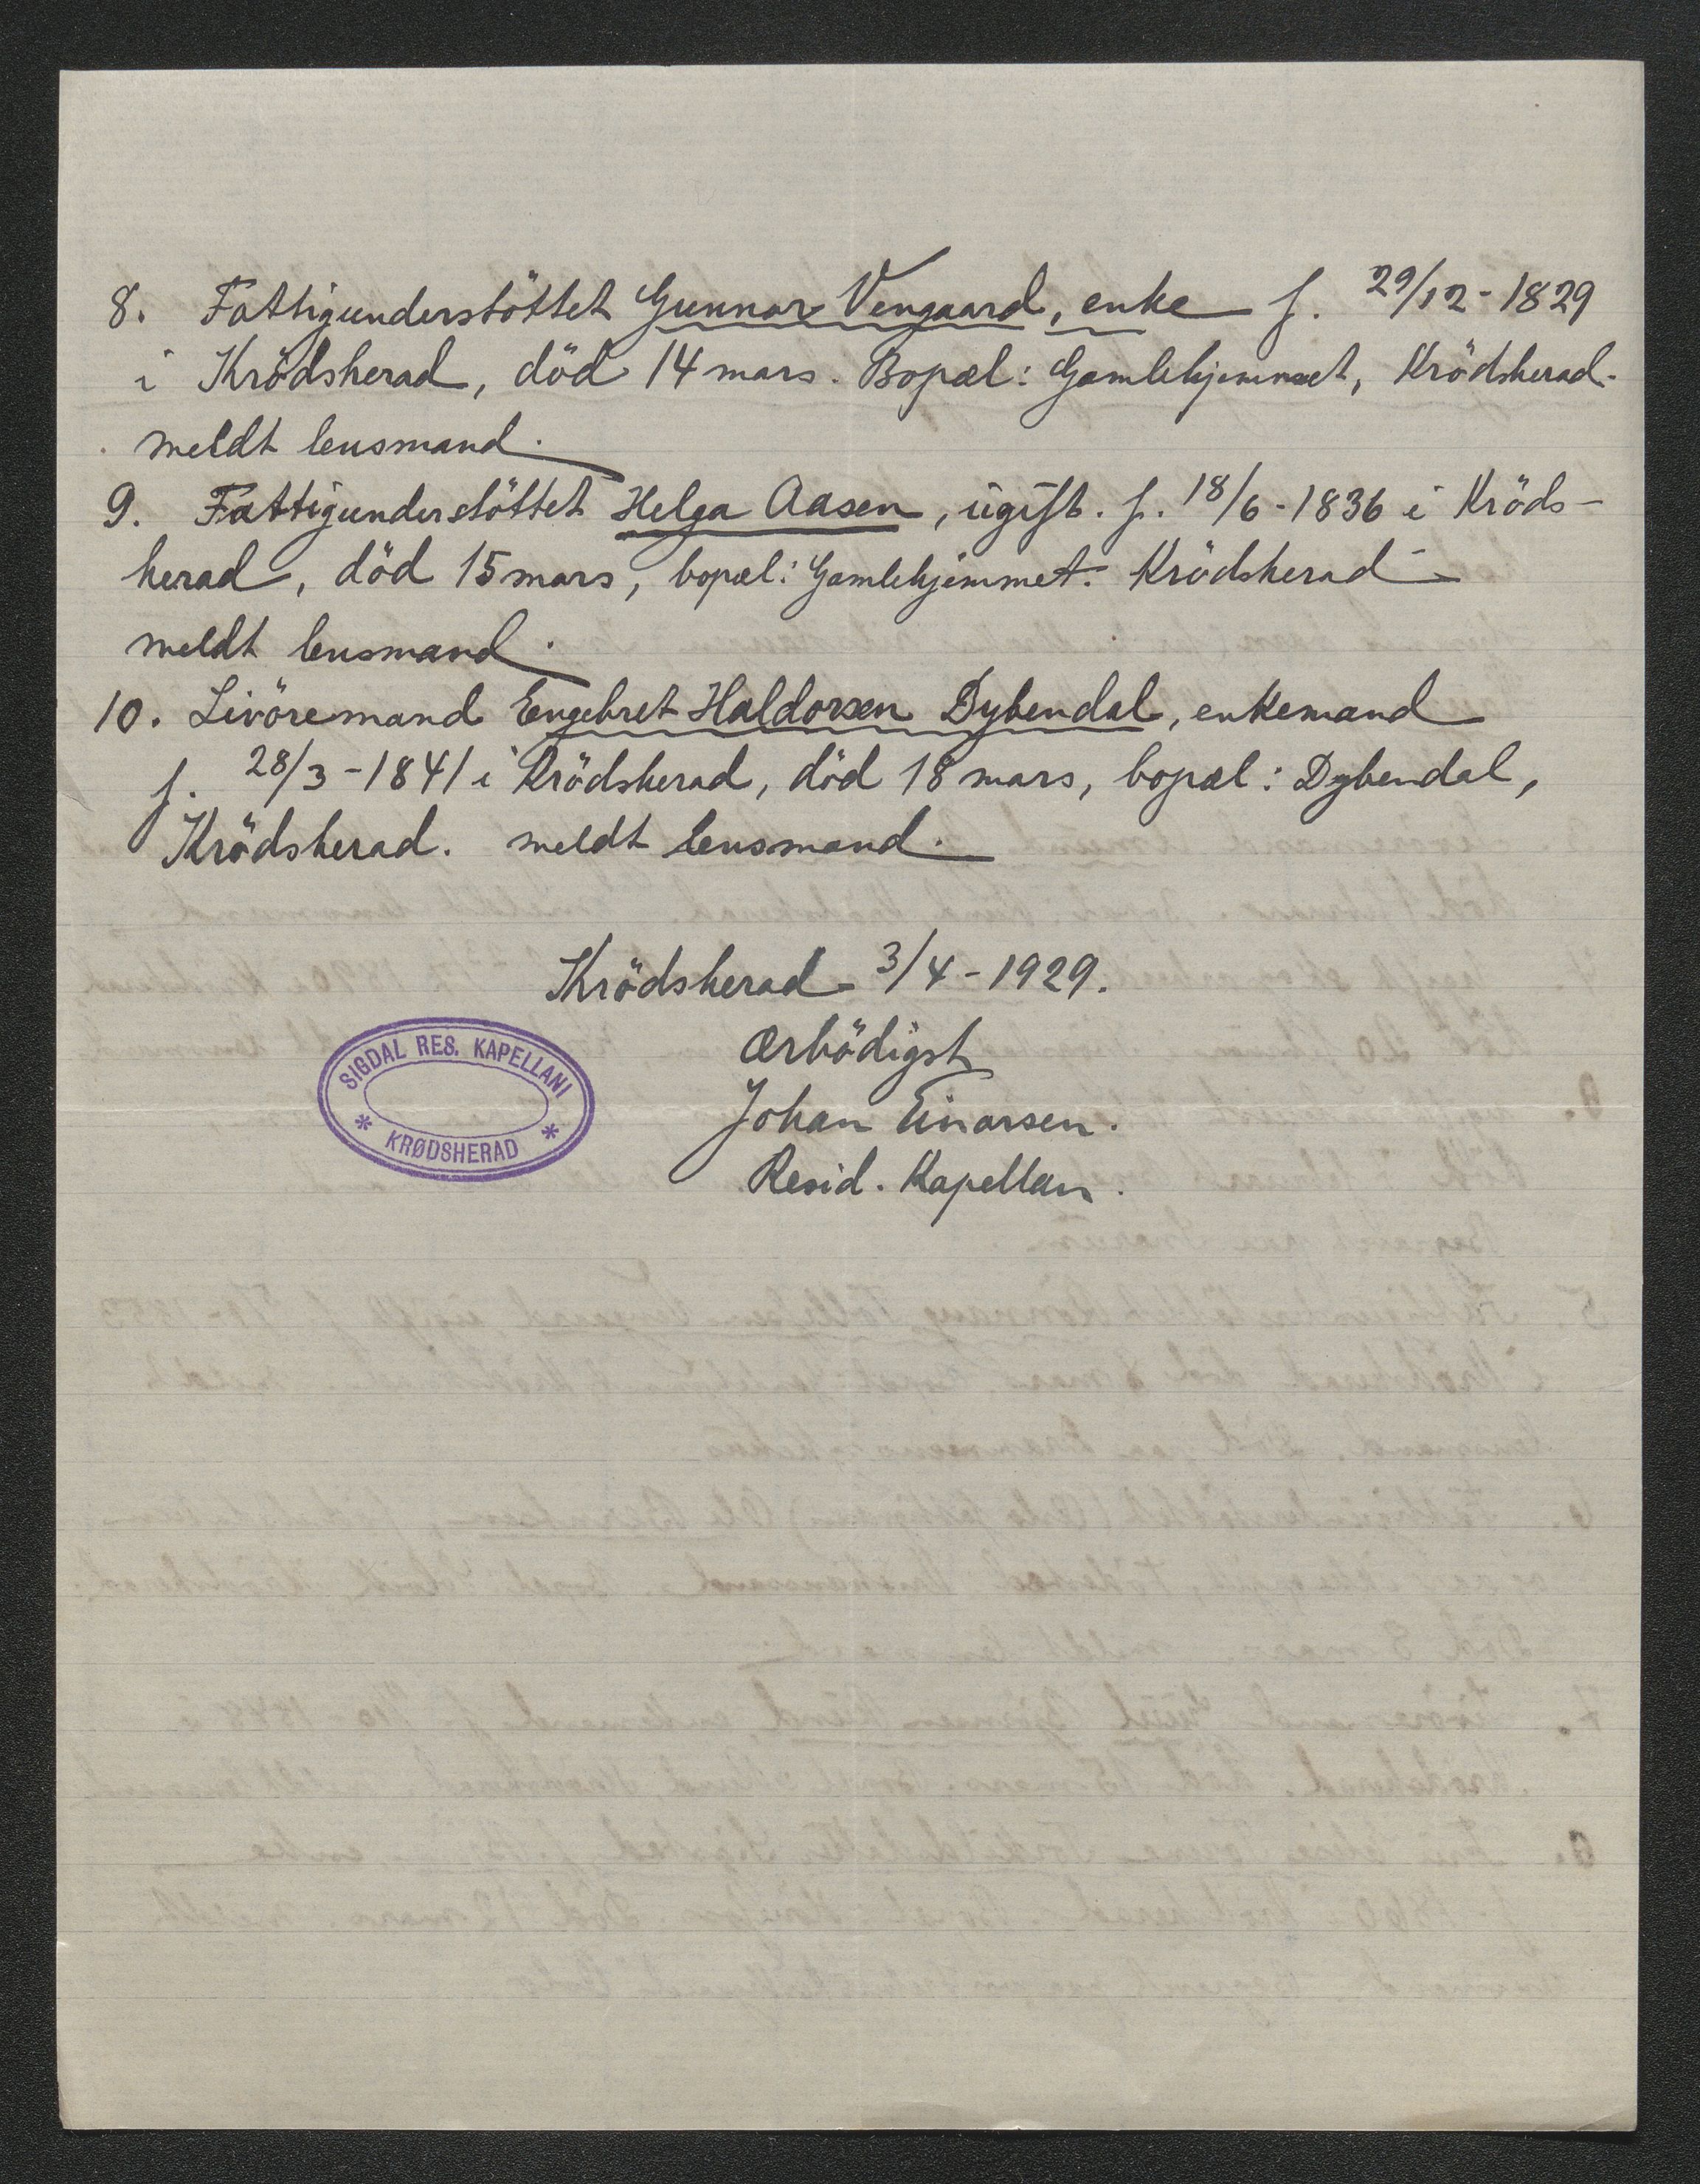 8. Fattigunderstöttet Gunnor Vengaard, enke f. 29/12-1829
i Krödsherad, död 14 mars. Bopæl: Gamlehjemmet, Krödsherad.
meldt lensmand.
9. Fattigunderstöttet Helga Aasen, ugift. f. 18/6-1836 i Kröds-
herad, död 15 mars, bopæl: Gamlehjemmet. Krödsherad
meldt lensmand.
10. Livöremand Engebret Haldorsen Dybendal, enkemand
f. 28/3-1841 i Krödsherad, död 18 mars, bopæl: Dybendal,
Krödsherad. meldt lensmand.
Krödsherad 3/4-1929.
ærbödigst
Johan Einarsen.
Resid. Kapellan.
SIGDAL RES. KAPELLANI
* KRØDSHERAD *